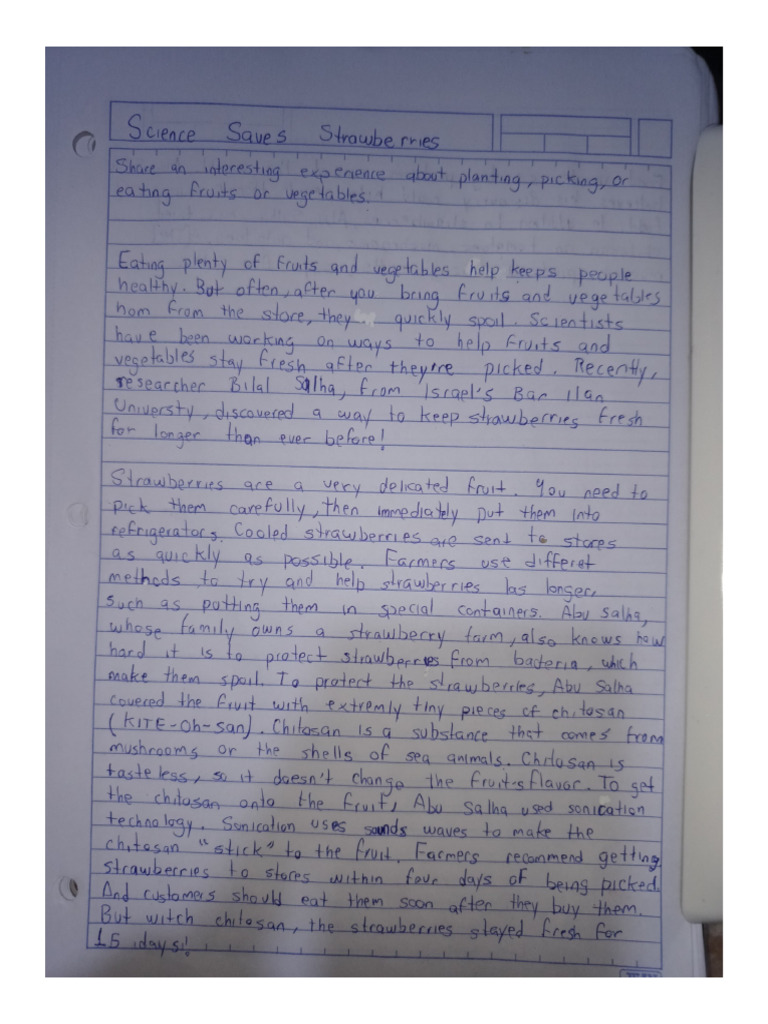 Science Saves Strawberries
Share an interesting experience about planting, picking, or
eating fruits or vegetables.
Eating plenty of fruits and vegetables help keeps people
healthy. But often, after you bring fruits and vegetables
hom from the store, they quickly spoil. Scientists
have been working on ways to help fruits and
vegetables stay fresh after they're picked. Recently,
researcher Bilal Salha, from Israel's Bar Ilan
Universty, discovered a way to keep strawberries fresh
for longer than ever before!
Strawberries are a very delicated fruit. You need to
pick them carefully, then immediately put them into
refrigerators. Cooled strawberries are sent to stores
as quickly as possible. Farmers use differet
methods to try and help strawberries las longer,
such as putting them in special containers. Abu Salha,
whose family owns a strawberry farm, also knows how
hard it is to protect strawberries from bacteria, which
make them spoil. To protect the strawberries, Abu Salha
covered the fruit with extremly tiny pieces of chitosan
(KITE-Oh-san). Chitosan is a substance that comes from
mushrooms or the shells of sea animals. Chitosan is
tasteless, so it doesn't change the fruit's flavor. To get
the chitosan onto the fruit, Abu Salha used sonication
technology. Sonication uses sounds waves to make the
chitosan "stick" to the fruit. Farmers recommend getting
strawberries to stores within four days of being picked.
And customers should eat them soon after they buy them.
But witch chitosan, the strawberries stayed fresh for
15 days!